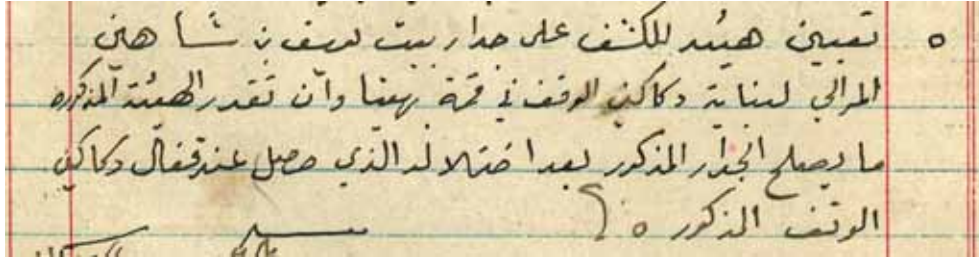 ٥ تعيين هيئه للكشف على جدار بيت يوسف بن شاهين
المرالي لبناية دكاكين الوقف في وان تقدر الهيئة المذكوره
ما يصلح الجدار المذكور بعد اختلاله الذي حصل عند دكاكين
الوقف المذكور ٥